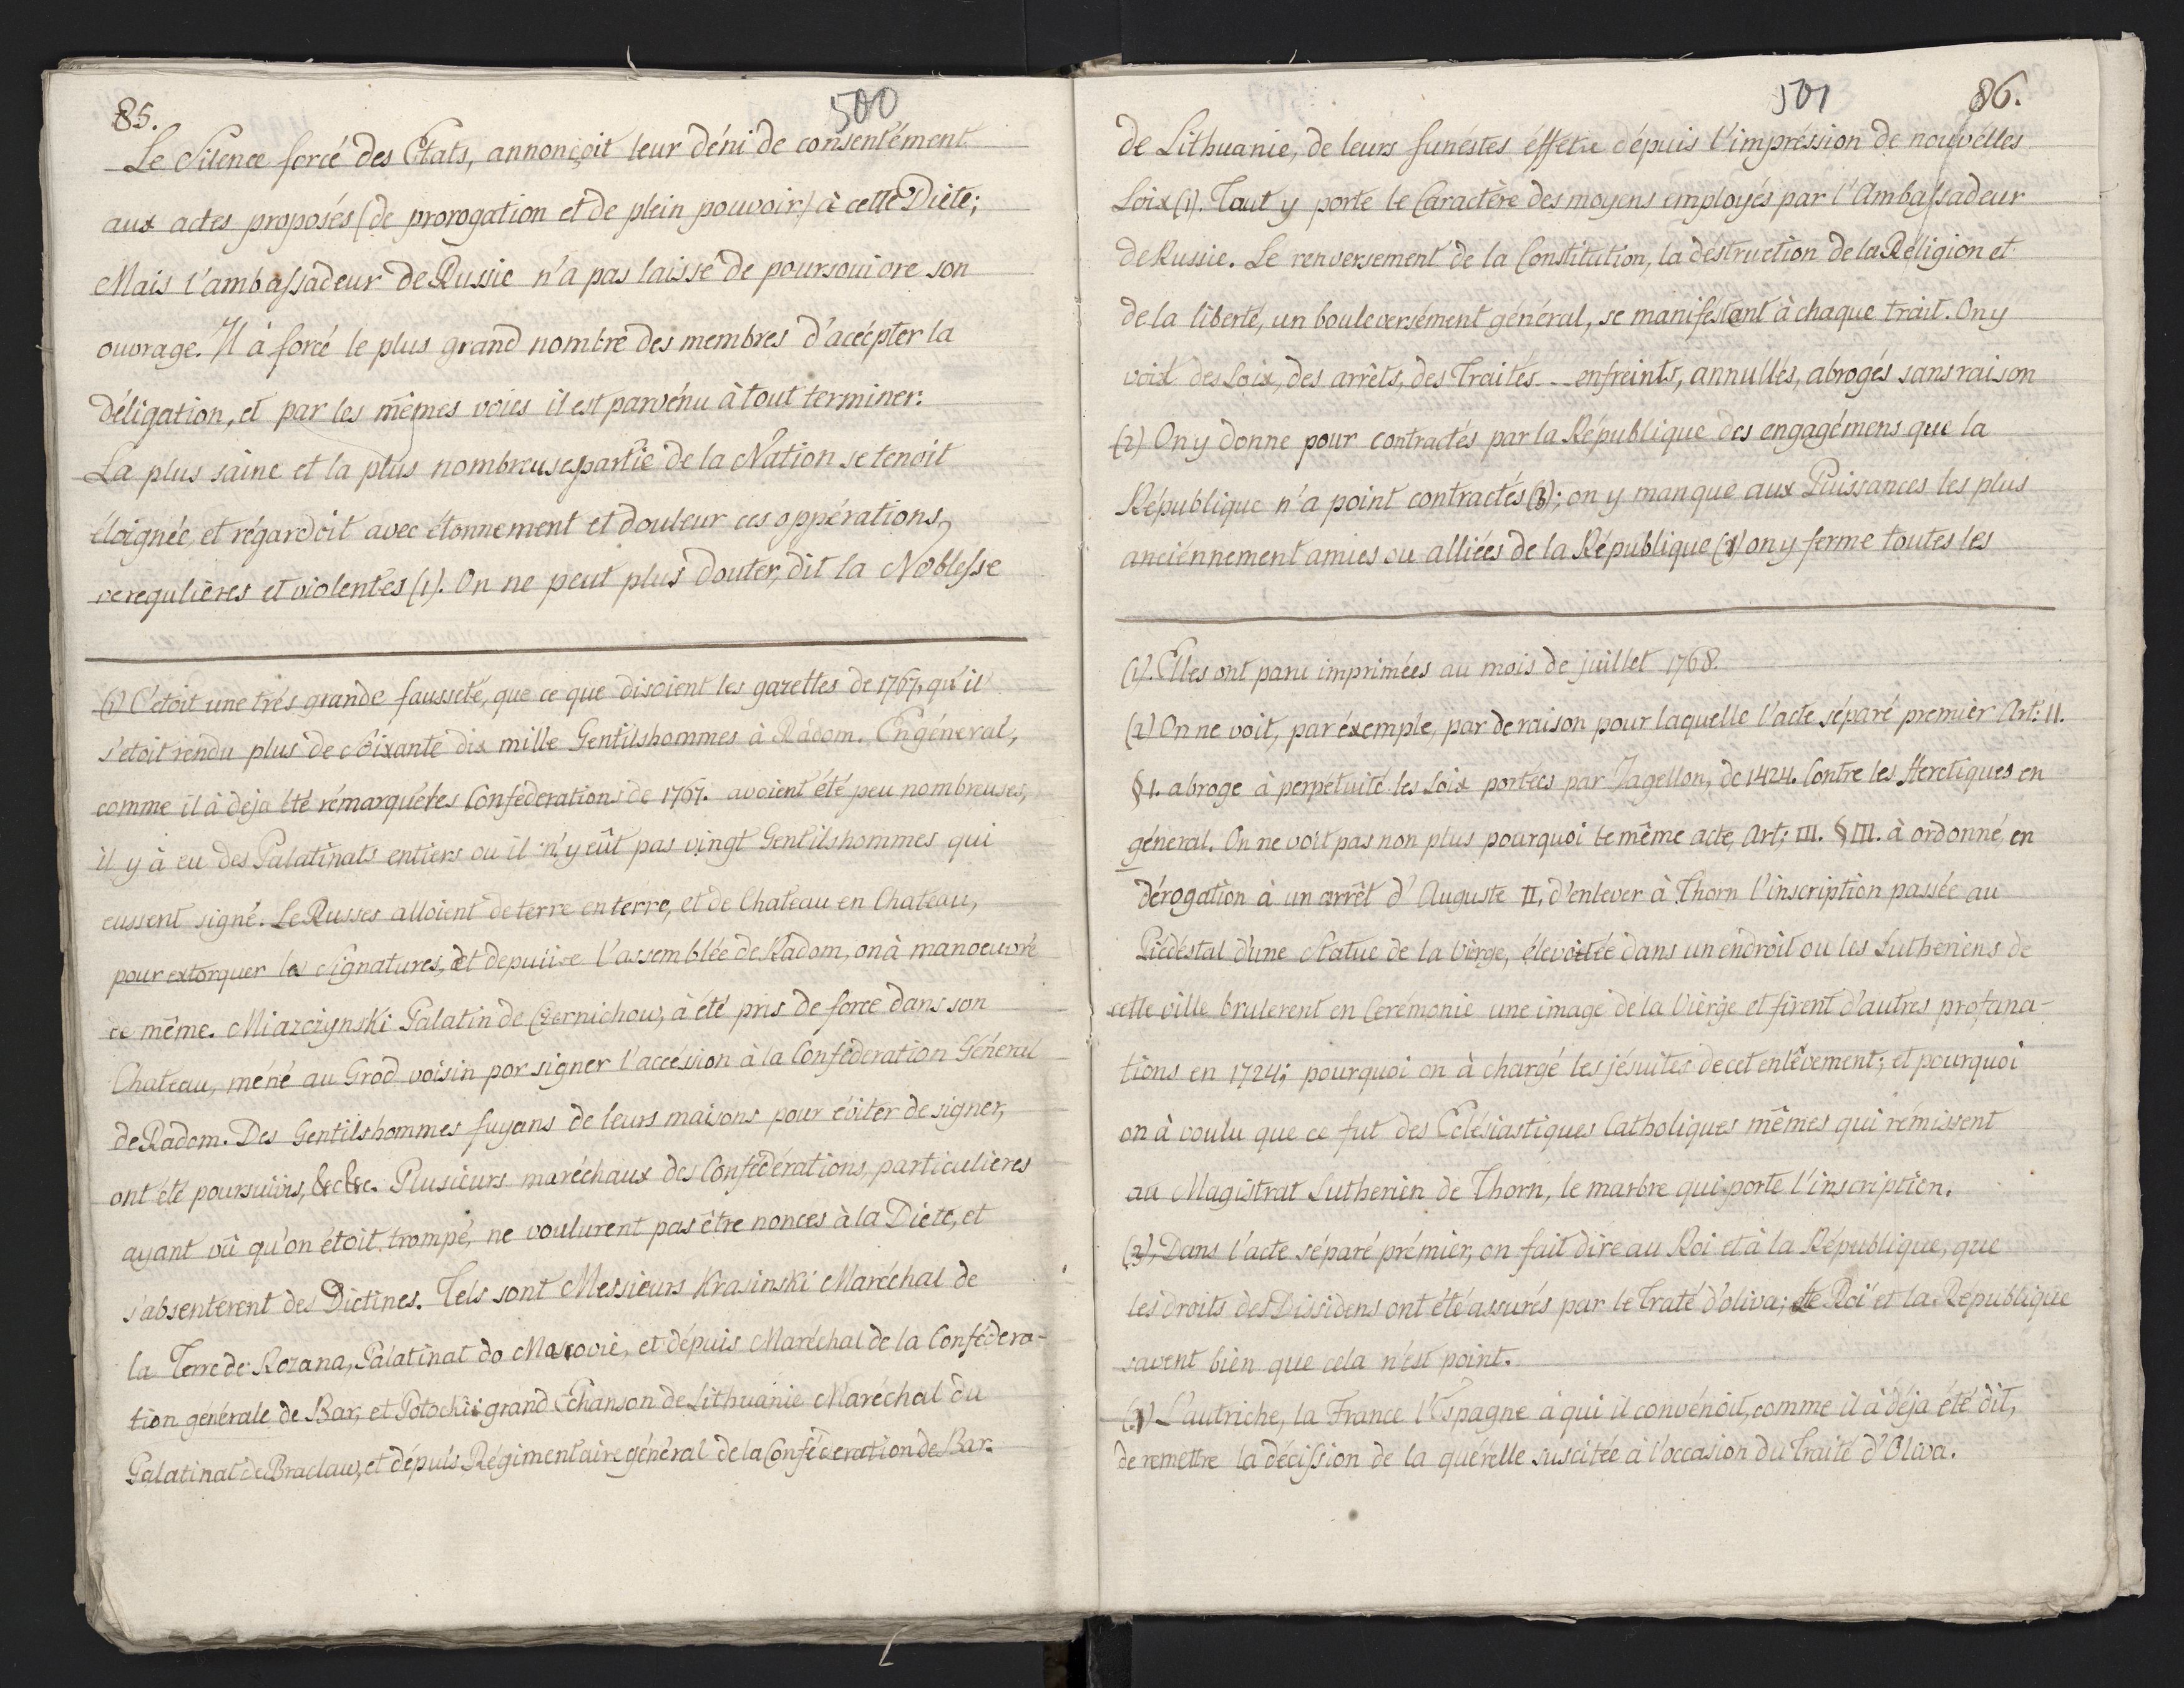 85.
500
Le Silence forcé des Etats, annonçoit leur déni de consentément
aux actes proposés (de prorogation et de plein pouvoir) à cette Diète;
Mais l'ambassadeur de Russie n'a pas laissé de poursouivre son
ouvrage. Il à forcé le plus grand nombre des membres d'acécpter la
déligation, et par les mêmes voies il est parvénu à tout terminer.
La plus saine et la plus nombreuse partie de la Nation se tenoit
éloignée, et régardoit avec étonnement et douleur ces oppérations,
reregulières et violentes (1). On ne peut plus douter, dit la Noblesse
(1) C'étoit une trés grande fausseté, que ce que disoient les gazettes de 1767, qu'il
s'étoit rendu plus de soixante dix mille Gentilshommes à Rádom. En général,
comme il à deja été rémarqué les Confederations de 1767. avoient été peu nombreuses,
il y à eu des Palatinats entiers ou il n'y eût pas vingt Gentilshommes qui
eussent signé. Le Russes alloient de terre en terre, et de Chateau en Chateau,
pour extorquer les signatures, et depuis l'assemblée de Radom, on à manoeuvré
de même. Miarczynski Palatin de Czernichow, à été pris de force dans son
Chateau, méné au Grod voisin por signer l'accéssion à la Confédération Géneral
de Radom. Des Gentilshommes fuyans de leurs maisons pour éviter de signer,
ont été poursuivis, &c &c. Plusieurs maréchaux des Confédérations, particulières
ayant vû qu'on étoit trompé, ne voulurent pas être nonces à la Diète, et
s'absentèrent des Dietines. Tels sont Messieurs Krasinski Maréchal de
la Terre de Rozana, Palatinat do Masovie, et dépuis Maréchal de la Confédera-
tion générale de Bar, et Potocki grand Echanson de Lithuanie Maréchal du
Palatinat de Braclaw, et dépuis Régimentaire général de la Conféderation de Bar.
501
86.
de Lithuanie, de leurs funéstes éfféts dépuis l'impréssion de nouvélles
Loix (1). Tout y porte le Caractère des moyens employés par l'Ambassadeur
de Russie. Le renversement de la Constitution, la déstruction de la Réligion et
de la liberté, un bouleversément général, se manifestant à chaque trait. On y
voit des Loix, des arrêts, des Traités __ enfreints, annullés, abrogés sans raison
(2) On y donne pour contractés par la République des engagémens que la
République n'a point contractés (3); on y manque aux Puissances les plus
anciénnement amies ou alliées de la République (4) on y ferme toutes les
(1). Elles ont paru imprimées au mois de juillet 1768.
(2) On ne voit, par éxemple, par de raison pour laquelle l'acte séparé premier Art: II.
§ 1. abroge à perpétuité les Loix portées par Jagellon, de 1424. Contre les Heretiques en
géneral. On ne voit pas non plus pourquoi le même acte, Art; III. § III. à ordonné, en
dérogation à un arrêt d'Auguste II, d'enlever à Thorn l'inscription passée au
Piédéstal d'une Statue de la Vièrge, élevée dans un endroit ou les Lutheriens de
cette ville brulerent en Cerémonie une image de la Vièrge et firent d'autres profana-
tions en 1724; pourquoi on à chargé les jésuites de cet enlêvement; et pourquoi
on à voulu que ce fut des Eclésiastiques Catholiques mêmes qui rémissent
au Magistrat Lutherien de Thorn, le marbre qui porte l'inscription.
(3), Dans l'acte séparé prémier, on fait dire au Roi et à la République, que
les droits des Dissidens ont été assurés par le Traté d'oliva; le Roi et la République
savent bien que cela n'est point.
(4) L'autriche, la France l'Espagne à qui il convénoit, comme il à déja été dit,
de remettre la décission de la quérelle suscitée à l'occasion du Traité d'Oliva.